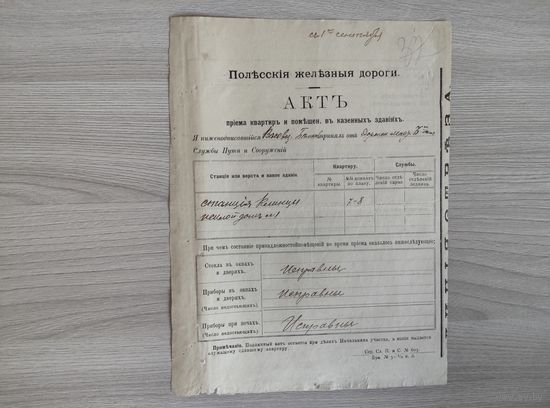 съ 1го сентября
37
Полѣсскія желѣзныя дороги.
АКТЪ
пріема квартиръ и помѣщен. въ казенныхъ зданіяхъ.
Я нижеподписавшійся принялъ отъ
Службы Пути и Сооруженій
Станція или верста и какое зданіе.
Квартиру.
Службы.
№ квартиры
№№ комнатъ по плану.
Число отдѣленій сарая
Число отдѣленій ледника
станція Клинцы 7-8
жилой домъ №1
При чемъ состояніе принадлежностей помѣщеній во время пріема оказалось нижеслѣдующее:
Стекла въ окнахъ и дверяхъ. Исправны
Приборы въ окнахъ и дверяхъ. Исправны
(Число недостающихъ.)
Приборы при печахъ. Исправны
(Число недостающихъ.)
Примѣчаніе. Подлинный актъ остается при дѣлахъ Начальника участка, а копія выдается
служащему сдавшему квартиру.
Сер. Сл. П. и С. №